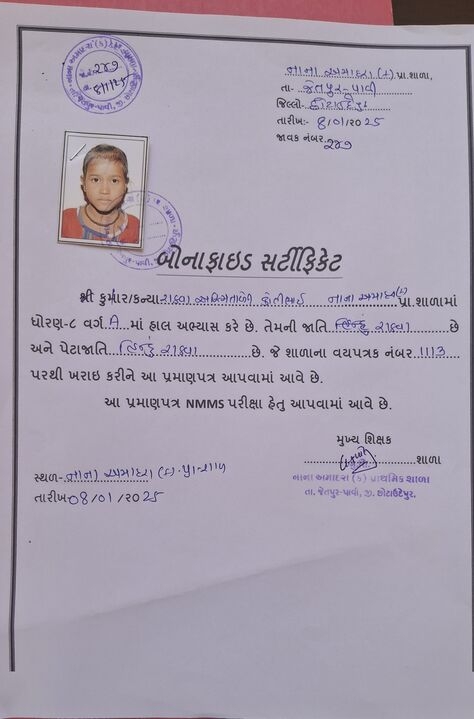 નાના અમાદરા (ક) પ્રા.શાળા,
તા- જેતપુર-પાવી
જિલ્લો- છોટાઉદેપુર
તારીખ:- 8/01/2025
જાવક નંબર. ૨૪૭
૨૪૭
8/1/25
બોનાફાઇડ સર્ટીફિકેટ
શ્રી કુમાર/કન્યા રાઠવા નાના અમાદરા (ક) પ્રા.શાળામાં
ધોરણ-૮ વર્ગ A માં હાલ અભ્યાસ કરે છે. તેમની જાતિ હિન્દુ રાઠવા છે
અને પેટાજાતિ હિન્દુ રાઠવા છે. જે શાળાના વયપત્રક નંબર 1113
પરથી ખરાઇ કરીને આ પ્રમાણપત્ર આપવામાં આવે છે.
આ પ્રમાણપત્ર NMMS પરીક્ષા હેતુ આપવામાં આવે છે.
મુખ્ય શિક્ષક
શાળા
નાના અમાદરા (ક) પ્રાથમિક શાળા
તા. જેતપુર-પાવી, જી. છોટાઉદેપુર.
સ્થળ- નાના અમાદરા (ક) પ્રા.શાળા
તારીખ- 08/01/2025